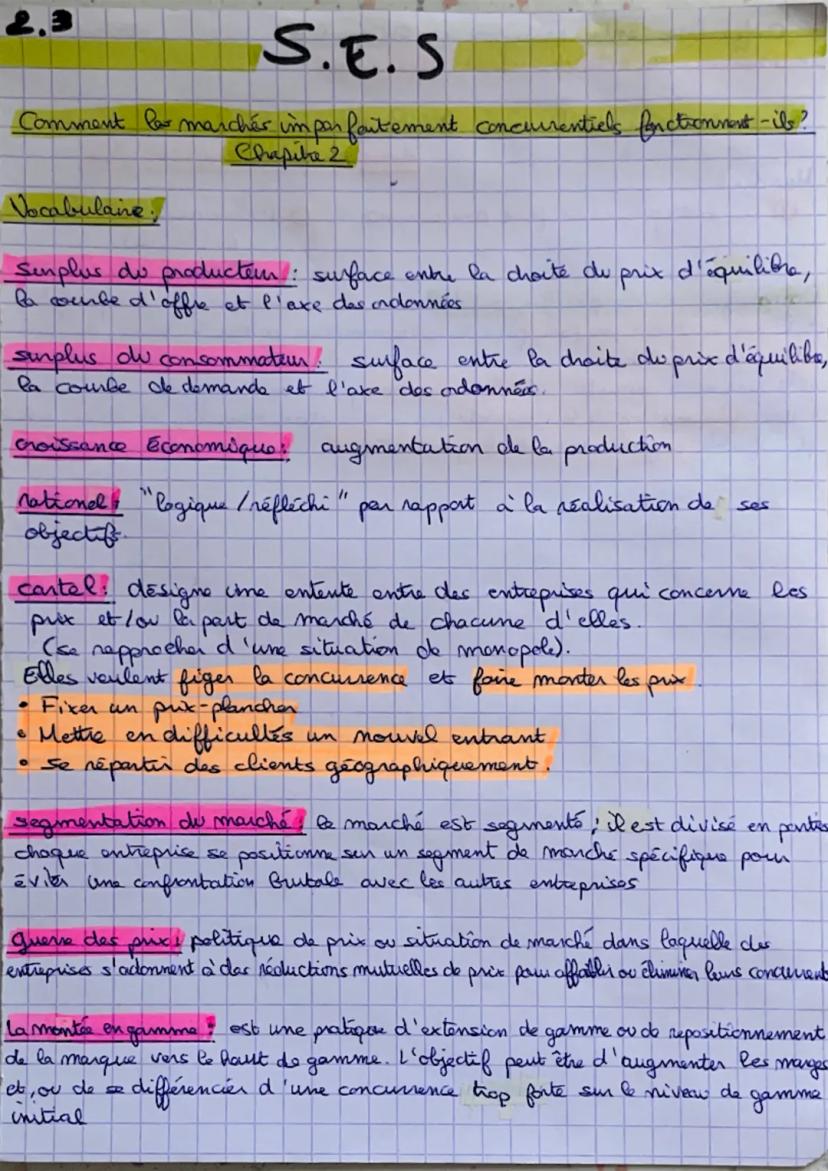 2.3
S.E.S
Comment les marchés imparfaitement concurrentiels fonctionnent-ils?
Chapitre 2
Vocabulaire:
surplus du producteur: surface entre la droite du prix d'équilibre,
la courbe d'offre et l'axe des ordonnées
surplus du consommateur: surface entre la droite du prix d'équilibre,
la courbe de demande et l'axe des ordonnées.
croissance économique: augmentation de la production
rationel: "logique/réfléchi" par rapport à la réalisation de ses
objectifs.
cartel: désigne une entente entre des entreprises qui concerne les
prix et/ou la part de marché de chacune d'elles.
(se rapprocher d'une situation de monopole).
Elles veulent figer la concurrence et faire monter les prix.
• Fixer un prix-plancher
• Mettre en difficultés un nouvel entrant
• se répartir des clients géographiquement.
segmentation du marché: le marché est segmenté; il est divisé en parties
chaque entreprise se positionne sur un segment de marché spécifique pour
éviter une confrontation brutale avec les autres entreprises
guerre des prix: politique de prix ou situation de marché dans laquelle des
entreprises s'adonnent à des réductions mutuelles de prix pour affaiblir ou éliminer leurs concurrents
la montée en gamme: est une pratique d'extension de gamme ou de repositionnement
de la marque vers le haut de gamme. L'objectif peut être d'augmenter les marges
et, ou de se différencier d'une concurrence trop forte sur le niveau de gamme
initial